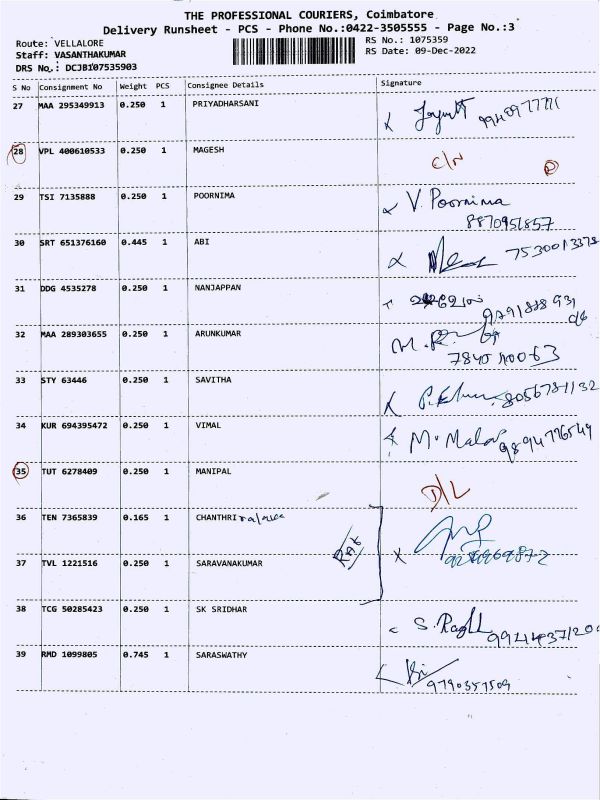 THE PROFESSIONAL COURIERS, Coimbatore
Delivery Runsheet - PCS - Phone No.:0422-3505555 - Page No.:3
Route: VELLALORE
RS No.: 1075359
Staff: VASANTHAKUMAR
RS Date: 09-Dec-2022
DRS No.: DCJBI07535903
S No Consignment No Weight PCS Consignee Details Signature
27 MAA 295349913 0.250 1 PRIYADHARSANI
28 VPL 400610533 0.250 1 MAGESH
29 TSI 7135888 0.250 1 POORNIMA V. Poornima
8870951857
30 SRT 651376160 0.445 1 ABI
7530013378
31 DDG 4535278 0.250 1 NANJAPPAN
32 MAA 289303655 0.250 1 ARUNKUMAR
33 STY 63446 0.250 1 SAVITHA 8056781132
34 KUR 694395472 0.250 1 VIMAL
9894776549
35 TUT 6278409 0.250 1 MANIPAL D/L
36 TEN 7365839 0.165 1 CHANTHRI
37 TVL 1221516 0.250 1 SARAVANAKUMAR
38 TCG 50285423 0.250 1 SK SRIDHAR
39 RMD 1099805 0.745 1 SARASWATHY
9790357509